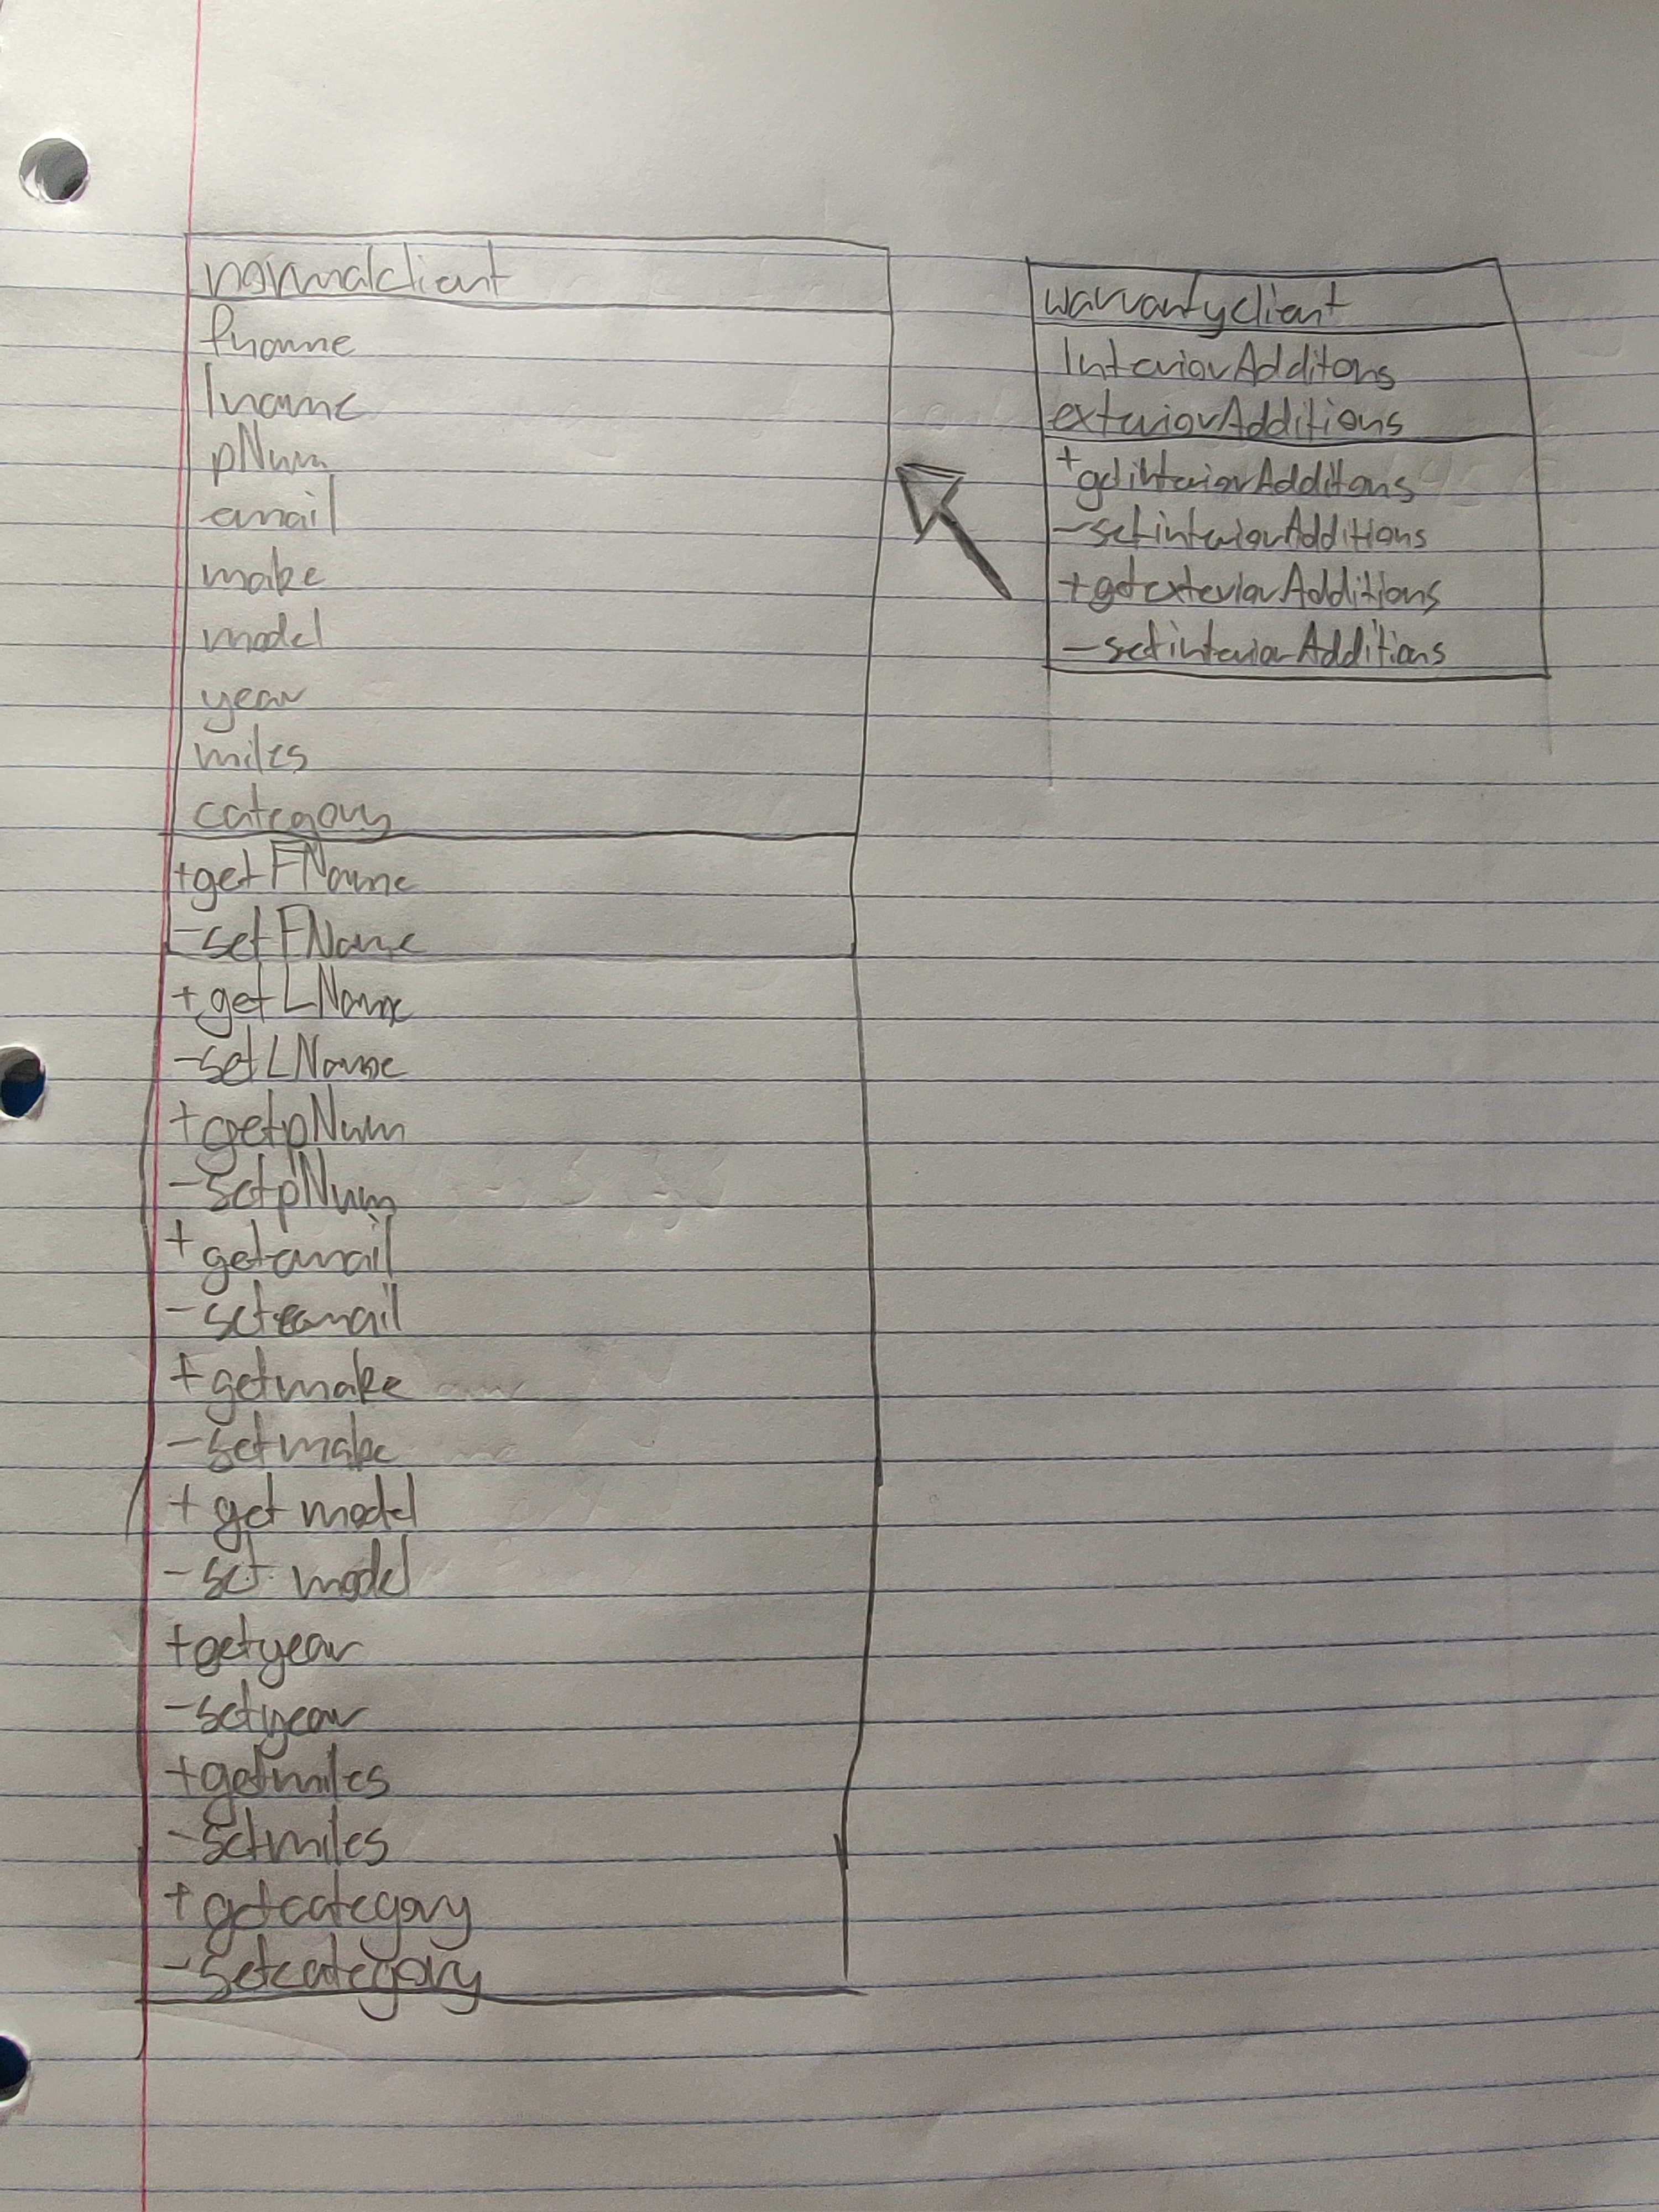 normalclient
fname
lname
pNum
email
make
model
year
miles
category
+getFName
-setFName
+getLName
-setLName
+getpNum
-setpNum
+getemail
-setemail
+getmake
-setmake
+get model
-set model
+getyear
-setyear
+getmiles
-setmiles
+getcategory
-setcategory
warrantyclient
InteriorAdditons
exteriorAdditions
+getinteriorAdditons
-setinteriorAdditions
+getexteriorAdditions
-setinteriorAdditions